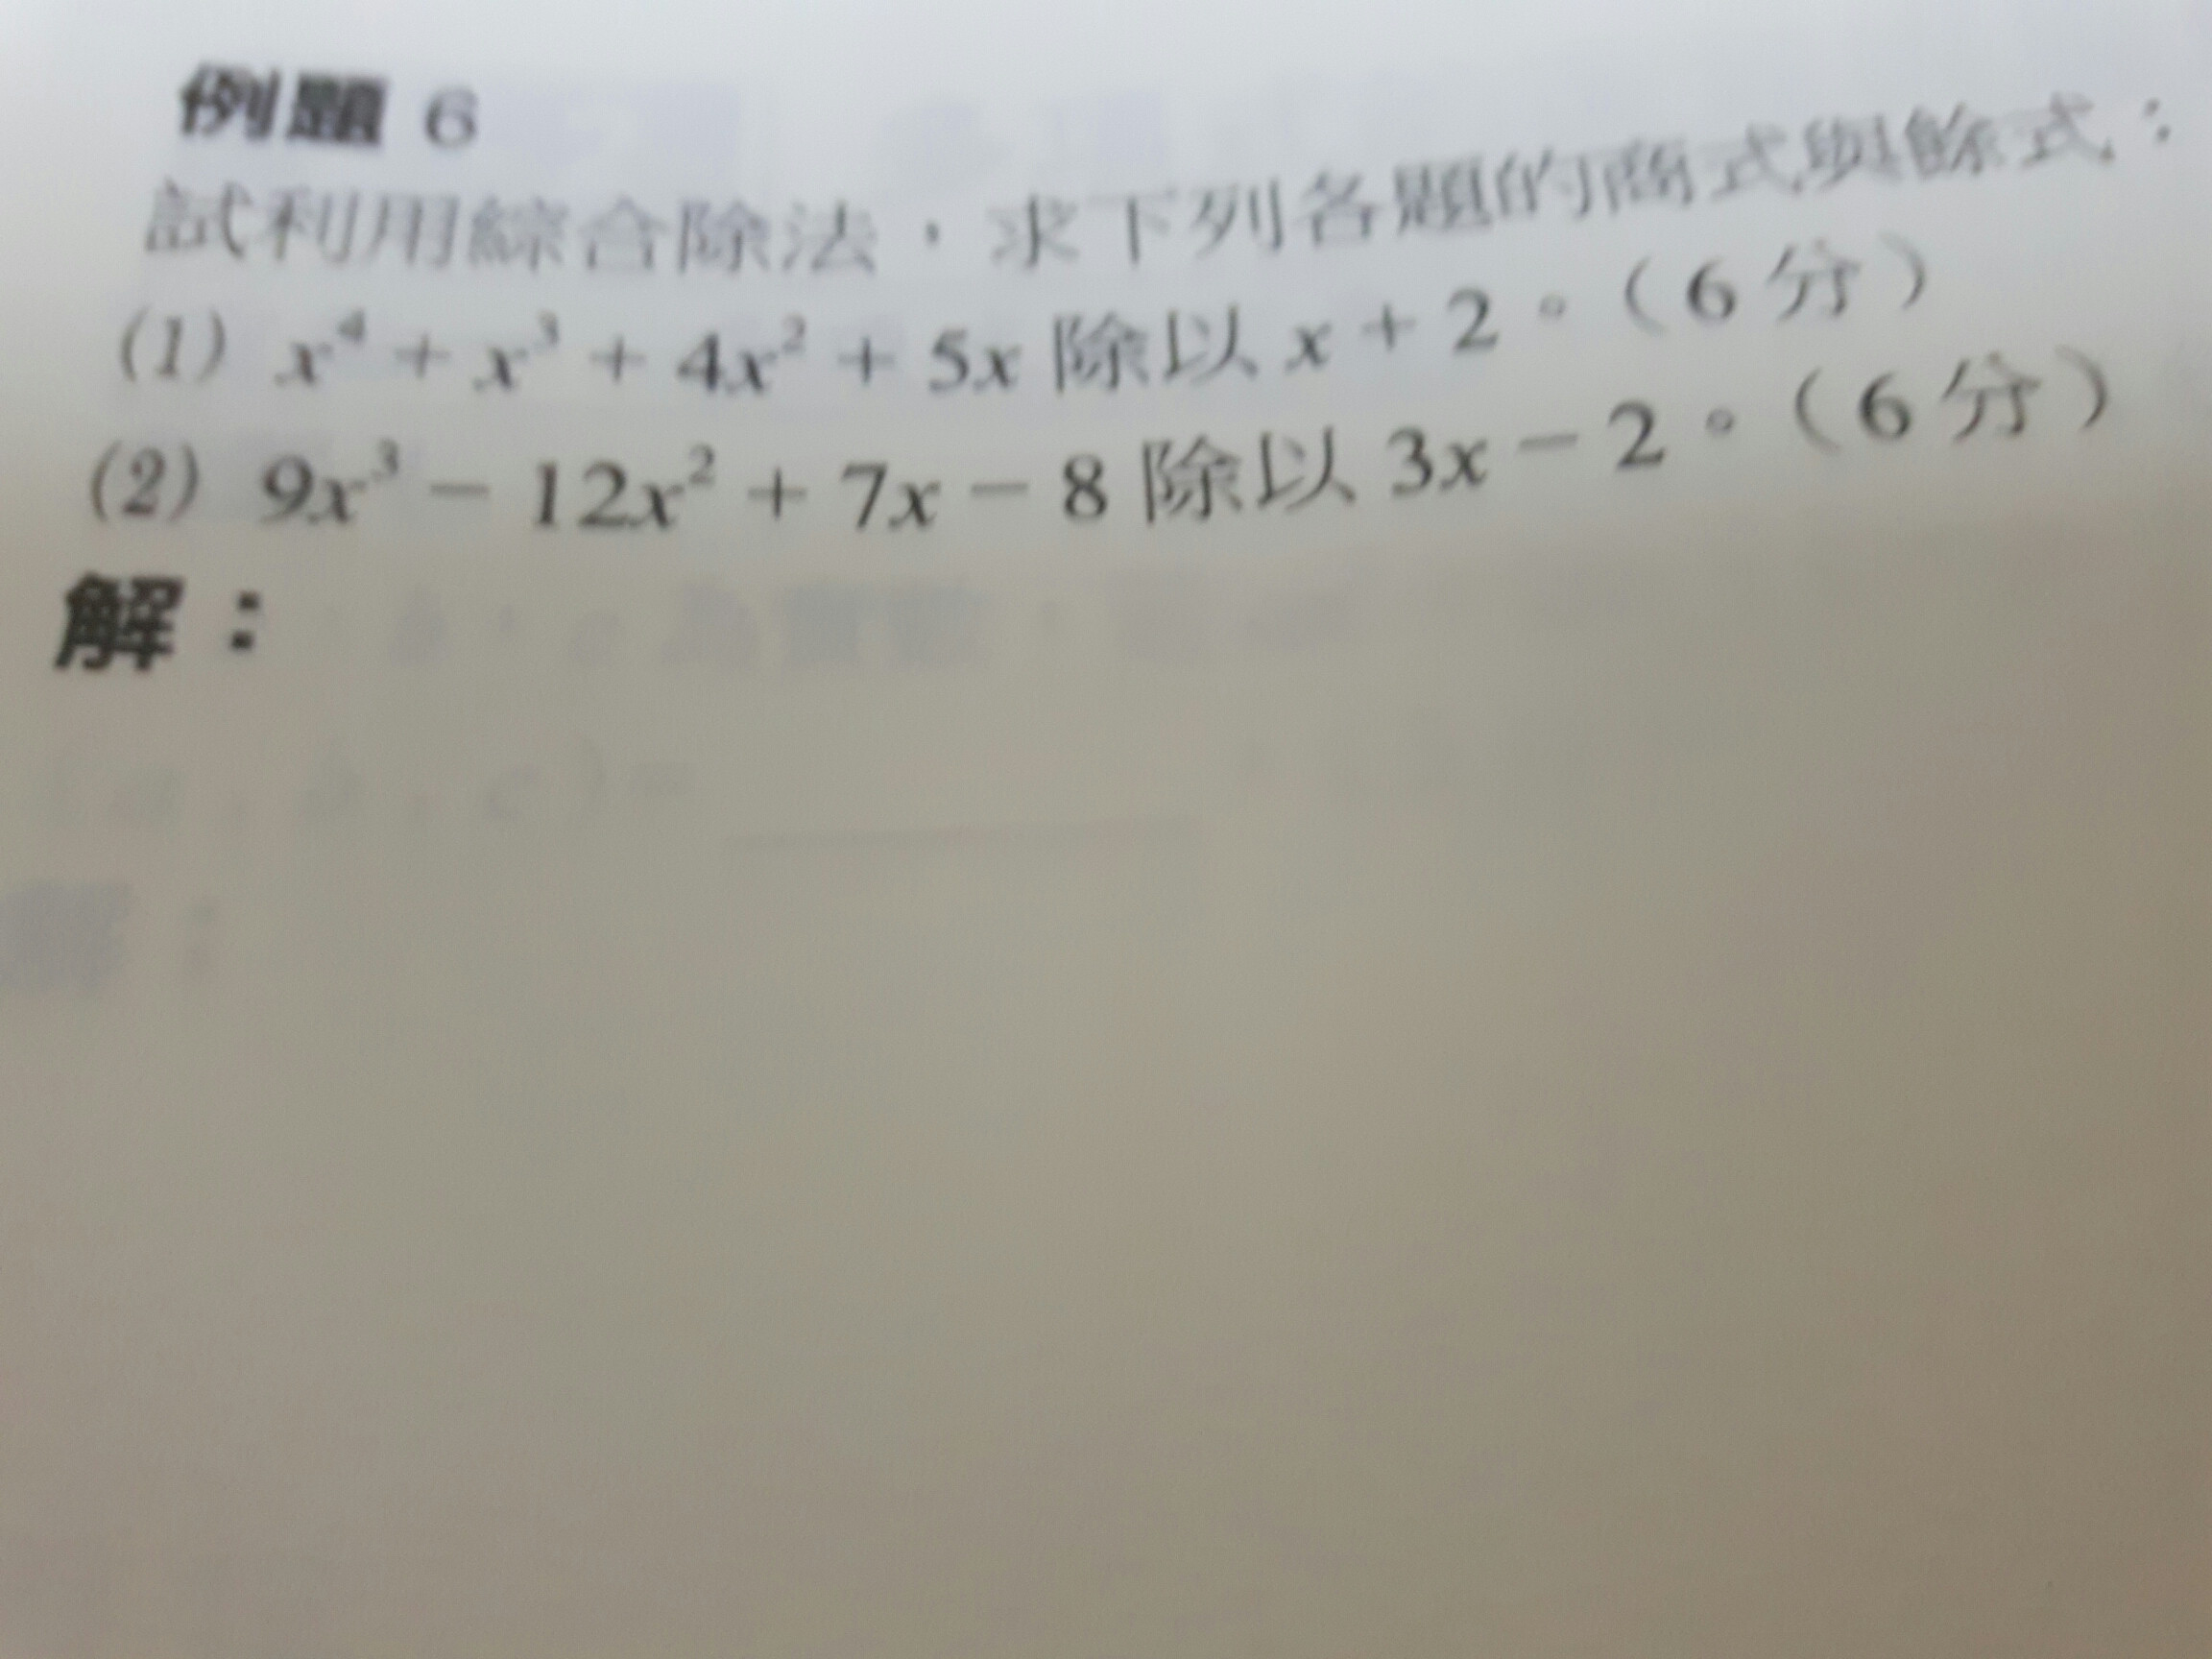 例題 6
試利用綜合除法，求下列各題的商式與餘式：
(1) x⁴ + x³ + 4x² + 5x 除以 x + 2。（6 分）
(2) 9x³ − 12x² + 7x − 8 除以 3x − 2。（6 分）
解：